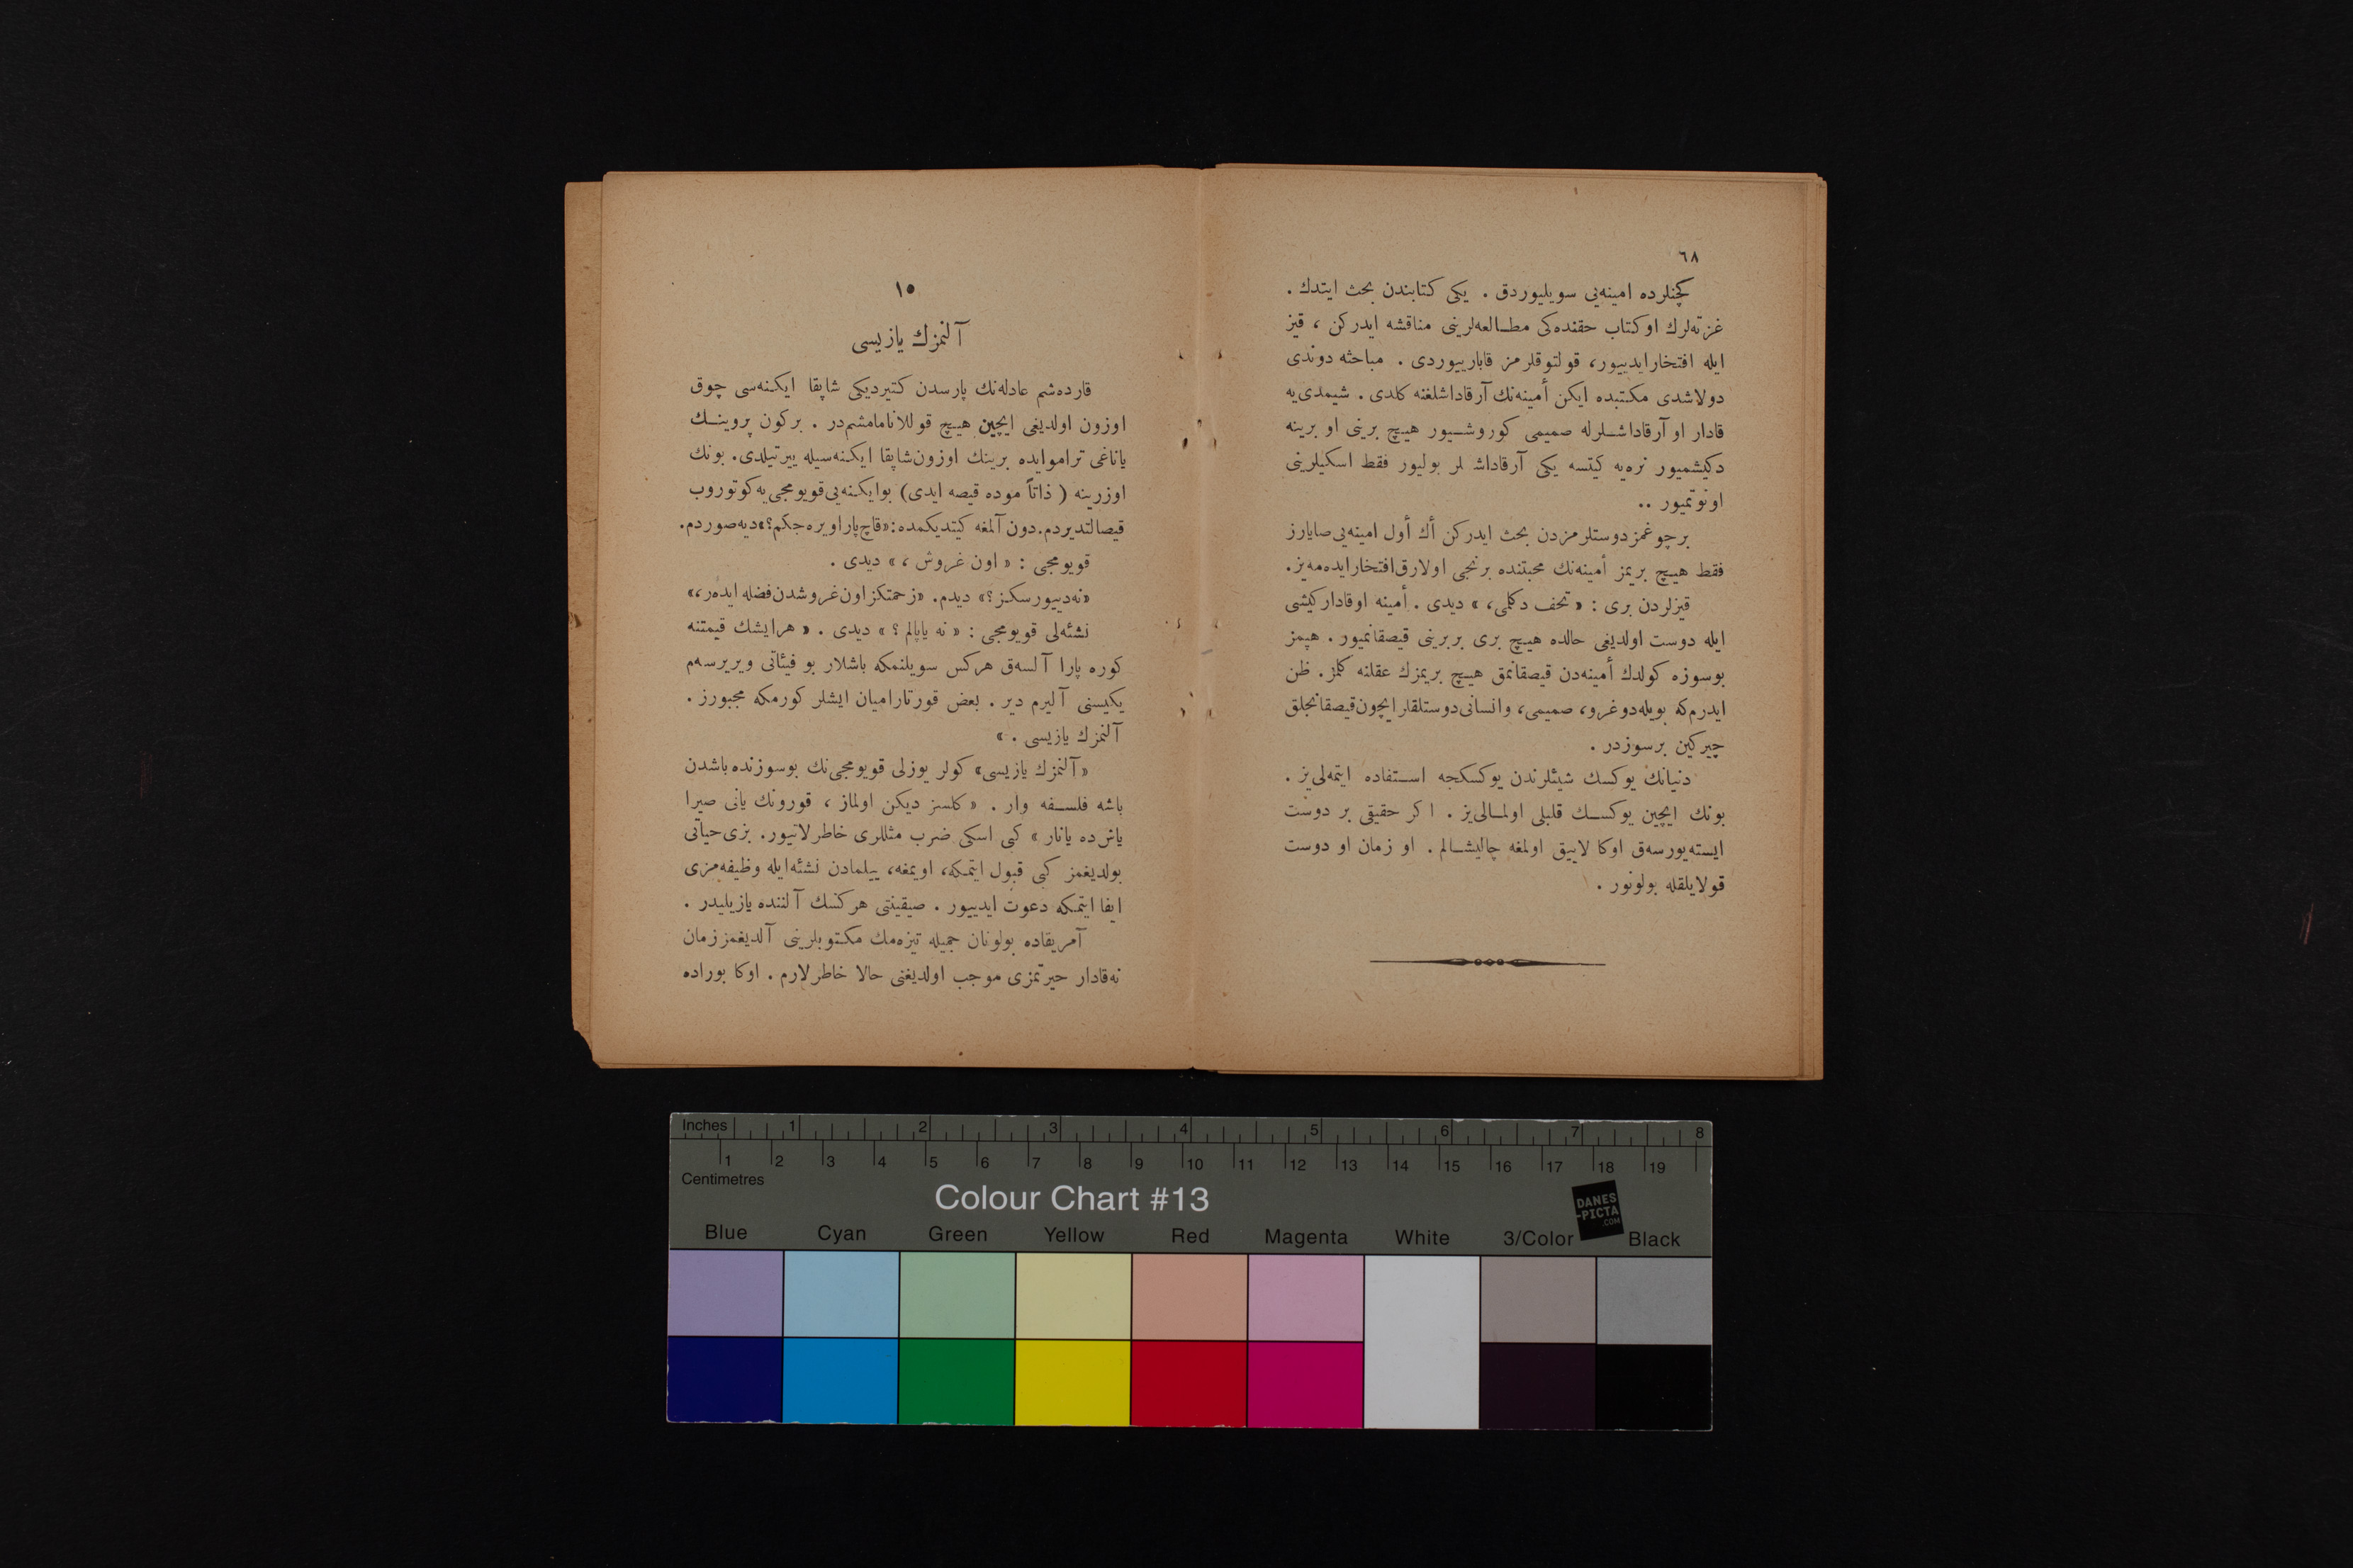 ٦٨
كچنلرده امينه‌يى سويليوردق . يكى كتابندن بحث ايتدك .
غزته‌لرك اوكتاب حقنده‌كى مطالعه‌لرينى مناقشه ايدركن ، قيز
ايله افتخار ايدييور، قولتوقلرمز قابارييوردى . مباحثه دوندى
دولاشدى مكتبده ايكن أمينه‌نك آرقاداشلغنه كلدى . شيمدى‌يه
قادار او آرقاداشلرله صميمى كوروشيور هيچ برينى او برينه
دكيشميور نره‌يه كيتسه يكى آرقاداش لر بوليور فقط اسكيلرينى
اونوتميور ..
برچوغمز دوستلرمزدن بحث ايدركن أك أول امينه‌يى صايارز
فقط هيچ بريمز أمينه‌نك محبتنده برنجى اولارق افتخار ايده‌مه‌يز.
قيزلردن برى : « تحف دكلمى، » ديدى . أمينه اوقادار كيشى
ايله دوست اولديغى حالده هيچ برى بربرينى قيصقانميور . هپمز
بوسوزه كولدك أمينه‌دن قيصقانمق هيچ بريمزك عقلنه كلمز. ظن
ايدرم‌كه بويله دوغرو، صميمى، وانسانى دوستلقلر ايچون قيصقانجلق
چيركين برسوزدر .
دنيانك يوكسك شيئلرندن يوكسكجه استفاده ايتمه‌لى‌يز .
بونك ايچين يوكسك قلبلى اولمالى‌يز . اكر حقيقى بر دوست
ايسته‌يورسه‌ق اوكا لاييق اولمغه چاليشالم . او زمان او دوست
قولايلقله بولونور .
١٥
آلنمزك يازيسى
قارده‌شم عادله‌نك پارسدن كتيرديكى شاپقا ايكنه‌سى چوق
اوزون اولديغى ايچين هيچ قوللانامامشم‌در . بركون پروينك
ياناغى تراموايده برينك اوزون شاپقا ايكنه‌سيله ييرتيلدى. بونك
اوزرينه ( ذاتاً موده قيصه ايدى) بوايكنه‌يى قويومجى‌يه كوتوروب
قيصالتديردم. دون آلمغه كيتديكمده: «قاچ پارا ويره‌جكم؟» ديه صوردم.
قويومجى : « اون غروش ، » ديدى .
«نه‌دييورسكز؟» ديدم. «زحمتكز اون غروشدن فضله ايده‌ر،»
نشئه‌لى قويومجى : « نه ياپالم ؟ » ديدى . « هرايشك قيمتنه
كوره پارا آلسه‌ق هركس سويلنمكه باشلار بو فيئاتى ويريرسه‌م
يكيسنى آليرم دير . بعض قورتاراميان ايشلر كورمكه مجبورز .
آلنمزك يازيسى . »
«آلنمزك يازيسى» كولر يوزلى قويومجى‌نك بوسوزنده باشدن
باشه فلسفه وار . « كلسز ديكن اولماز ، قورونك يانى صيرا
ياش ده يانار » كبى اسكى ضرب مثللرى خاطرلاتيور. بزى حياتى
بولديغمز كبى قبول ايتمكه، اويمغه، ييلمادن نشئه‌ايله وظيفه‌مزى
ايفا ايتمكه دعوت ايدييور . صيقينتى هركسك آلننده يازيليدر .
آمريقاده بولونان جميله تيزه‌مك مكتوبلرينى آلديغمز زمان
نه‌قادار حيرتمزى موجب اولديغنى حالا خاطرلارم . اوكا بوراده
Inches 1 2 3 4 5 6 7 8
1 2 3 4 5 6 7 8 9 10 11 12 13 14 15 16 17 18 19
Centimetres
Colour Chart #13
DANES
-PICTA
.COM
Blue Cyan Green Yellow Red Magenta White 3/Color Black